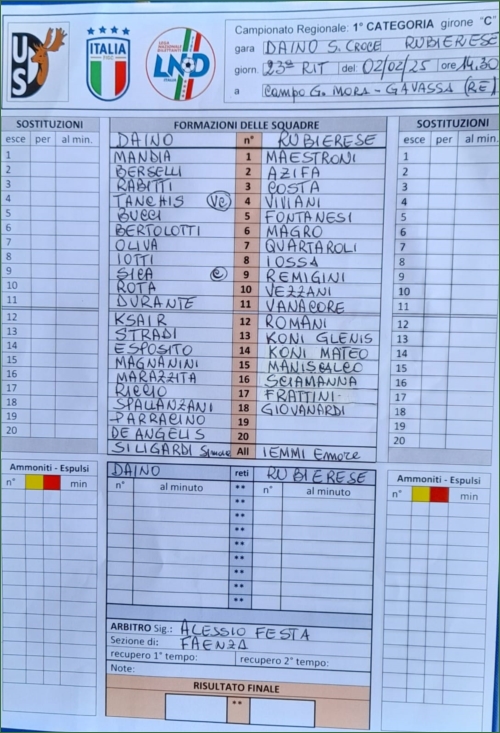 U S
ITALIA
FIGC
LEGA NAZIONALE DILETTANTI
LND
ITALIA
Campionato Regionale: 1° CATEGORIA girone "C"
gara DAINO S. CROCE RUBIERESE
giorn. 23ª RIT del: 02/02/25 ore 14.30
a CAMPO G. MORA - GAVASSA (RE)
SOSTITUZIONI FORMAZIONI DELLE SQUADRE SOSTITUZIONI
esce per al min. DAINO n° RUBIERESE esce per al min.
1 MANDIA 1 MAESTRONI 1
2 BERSELLI 2 AZIFA 2
3 RABITTI 3 COSTA 3
4 TANCHIS VC 4 VIVIANI 4
5 BUCCI 5 FONTANESI 5
6 BERTOLOTTI 6 MAGRO 6
7 OLIVA 7 QUARTAROLI 7
8 IOTTI 8 IOSSA 8
9 SICA C 9 REMIGINI 9
10 ROTA 10 VEZZANI 10
11 DURANTE 11 VANACORE 11
12 KSAIR 12 ROMANI 12
13 STRADI 13 KONI GLENIS 13
14 ESPOSITO 14 KONI MATEO 14
15 MAGNANINI 15 MANISCALCO 15
16 MARAZZITA 16 SCIAMANNA 16
17 RICCIO 17 FRATTINI 17
18 SPALLANZANI 18 GIOVANARDI 18
19 PARRACINO 19 19
20 DE ANGELIS 20 20
SILIGARDI All IEMMI Emore
Ammoniti - Espulsi DAINO reti RUBIERESE Ammoniti - Espulsi
n° min n° al minuto ** n° al minuto n° min
**
**
**
**
**
**
**
**
ARBITRO Sig.: ALESSIO FESTA
Sezione di: FAENZA
recupero 1° tempo: recupero 2° tempo:
Note:
RISULTATO FINALE
**